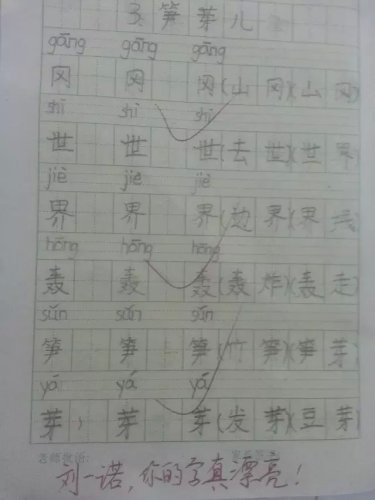 3. 笋芽儿
gāng gāng gāng
冈 冈 冈(山冈)(山冈)
shì shì shì
世 世 世(去世)(世界)
jiè jiè jiè
界 界 界(边界)(界线)
hōng hōng hōng
轰 轰 轰(轰炸)(轰走)
sǔn sǔn sǔn
笋 笋 笋(竹笋)(笋芽)
yá yá yá
芽 芽 芽(发芽)(豆芽)
老师批语:
刘一诺，你的字真漂亮！